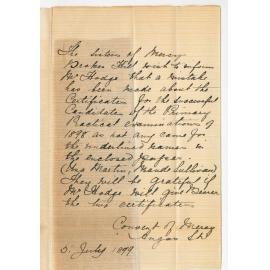 The Sisters of Mercy
Broken Hill wish to inform
Mr Hodge that a mistake
has been made about the
Certificates for the successful
Candidates of the Primary
Practical examinations of
1898 as not any came for
the underlined names in
the enclosed paper.
(Ivy Martin, Maude Sullivan)
They will be grateful if
Mr Hodge will give Bearer
the two certificates
Convent of Mercy
Angas St
5 July 1899